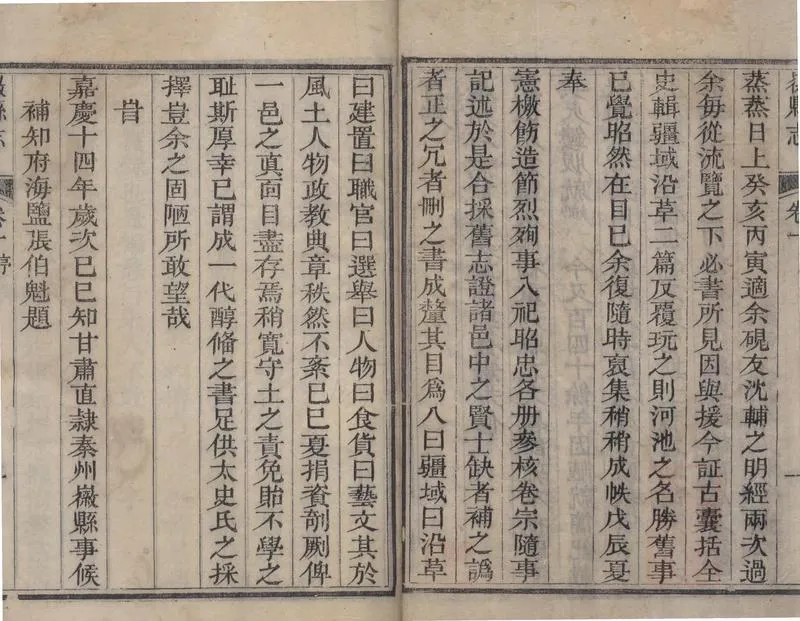 蒸蒸日上癸亥丙寅適余硯友沈輔之明經兩次過
余每從流覽之下必書所見因與援今証古囊括全
史輯疆域沿草二篇反覆玩之則河池之名勝舊事
已覺昭然在目已余復隨時裒集稍稍成帙戊辰夏
奉
憲檄飭造節烈殉事入祀昭忠各册參核卷宗隨事
記述於是合採舊志證諸邑中之賢士缺者補之譌
者正之冗者刪之書成釐其目爲八曰疆域曰沿草
曰建置曰職官曰選舉曰人物曰食貨曰藝文其於
風土人物政教典章秩然不紊已巳夏捐資剞劂俾
一邑之真面目盡存焉稍寬守土之責免貽不學之
耻斯厚幸已謂成一代醇備之書足供太史氏之採
擇豈余之固陋所敢望哉
旹
嘉慶十四年歲次己巳知甘肅直隷秦州徽縣事候
補知府海鹽張伯魁題
徽縣志
卷一
序
一